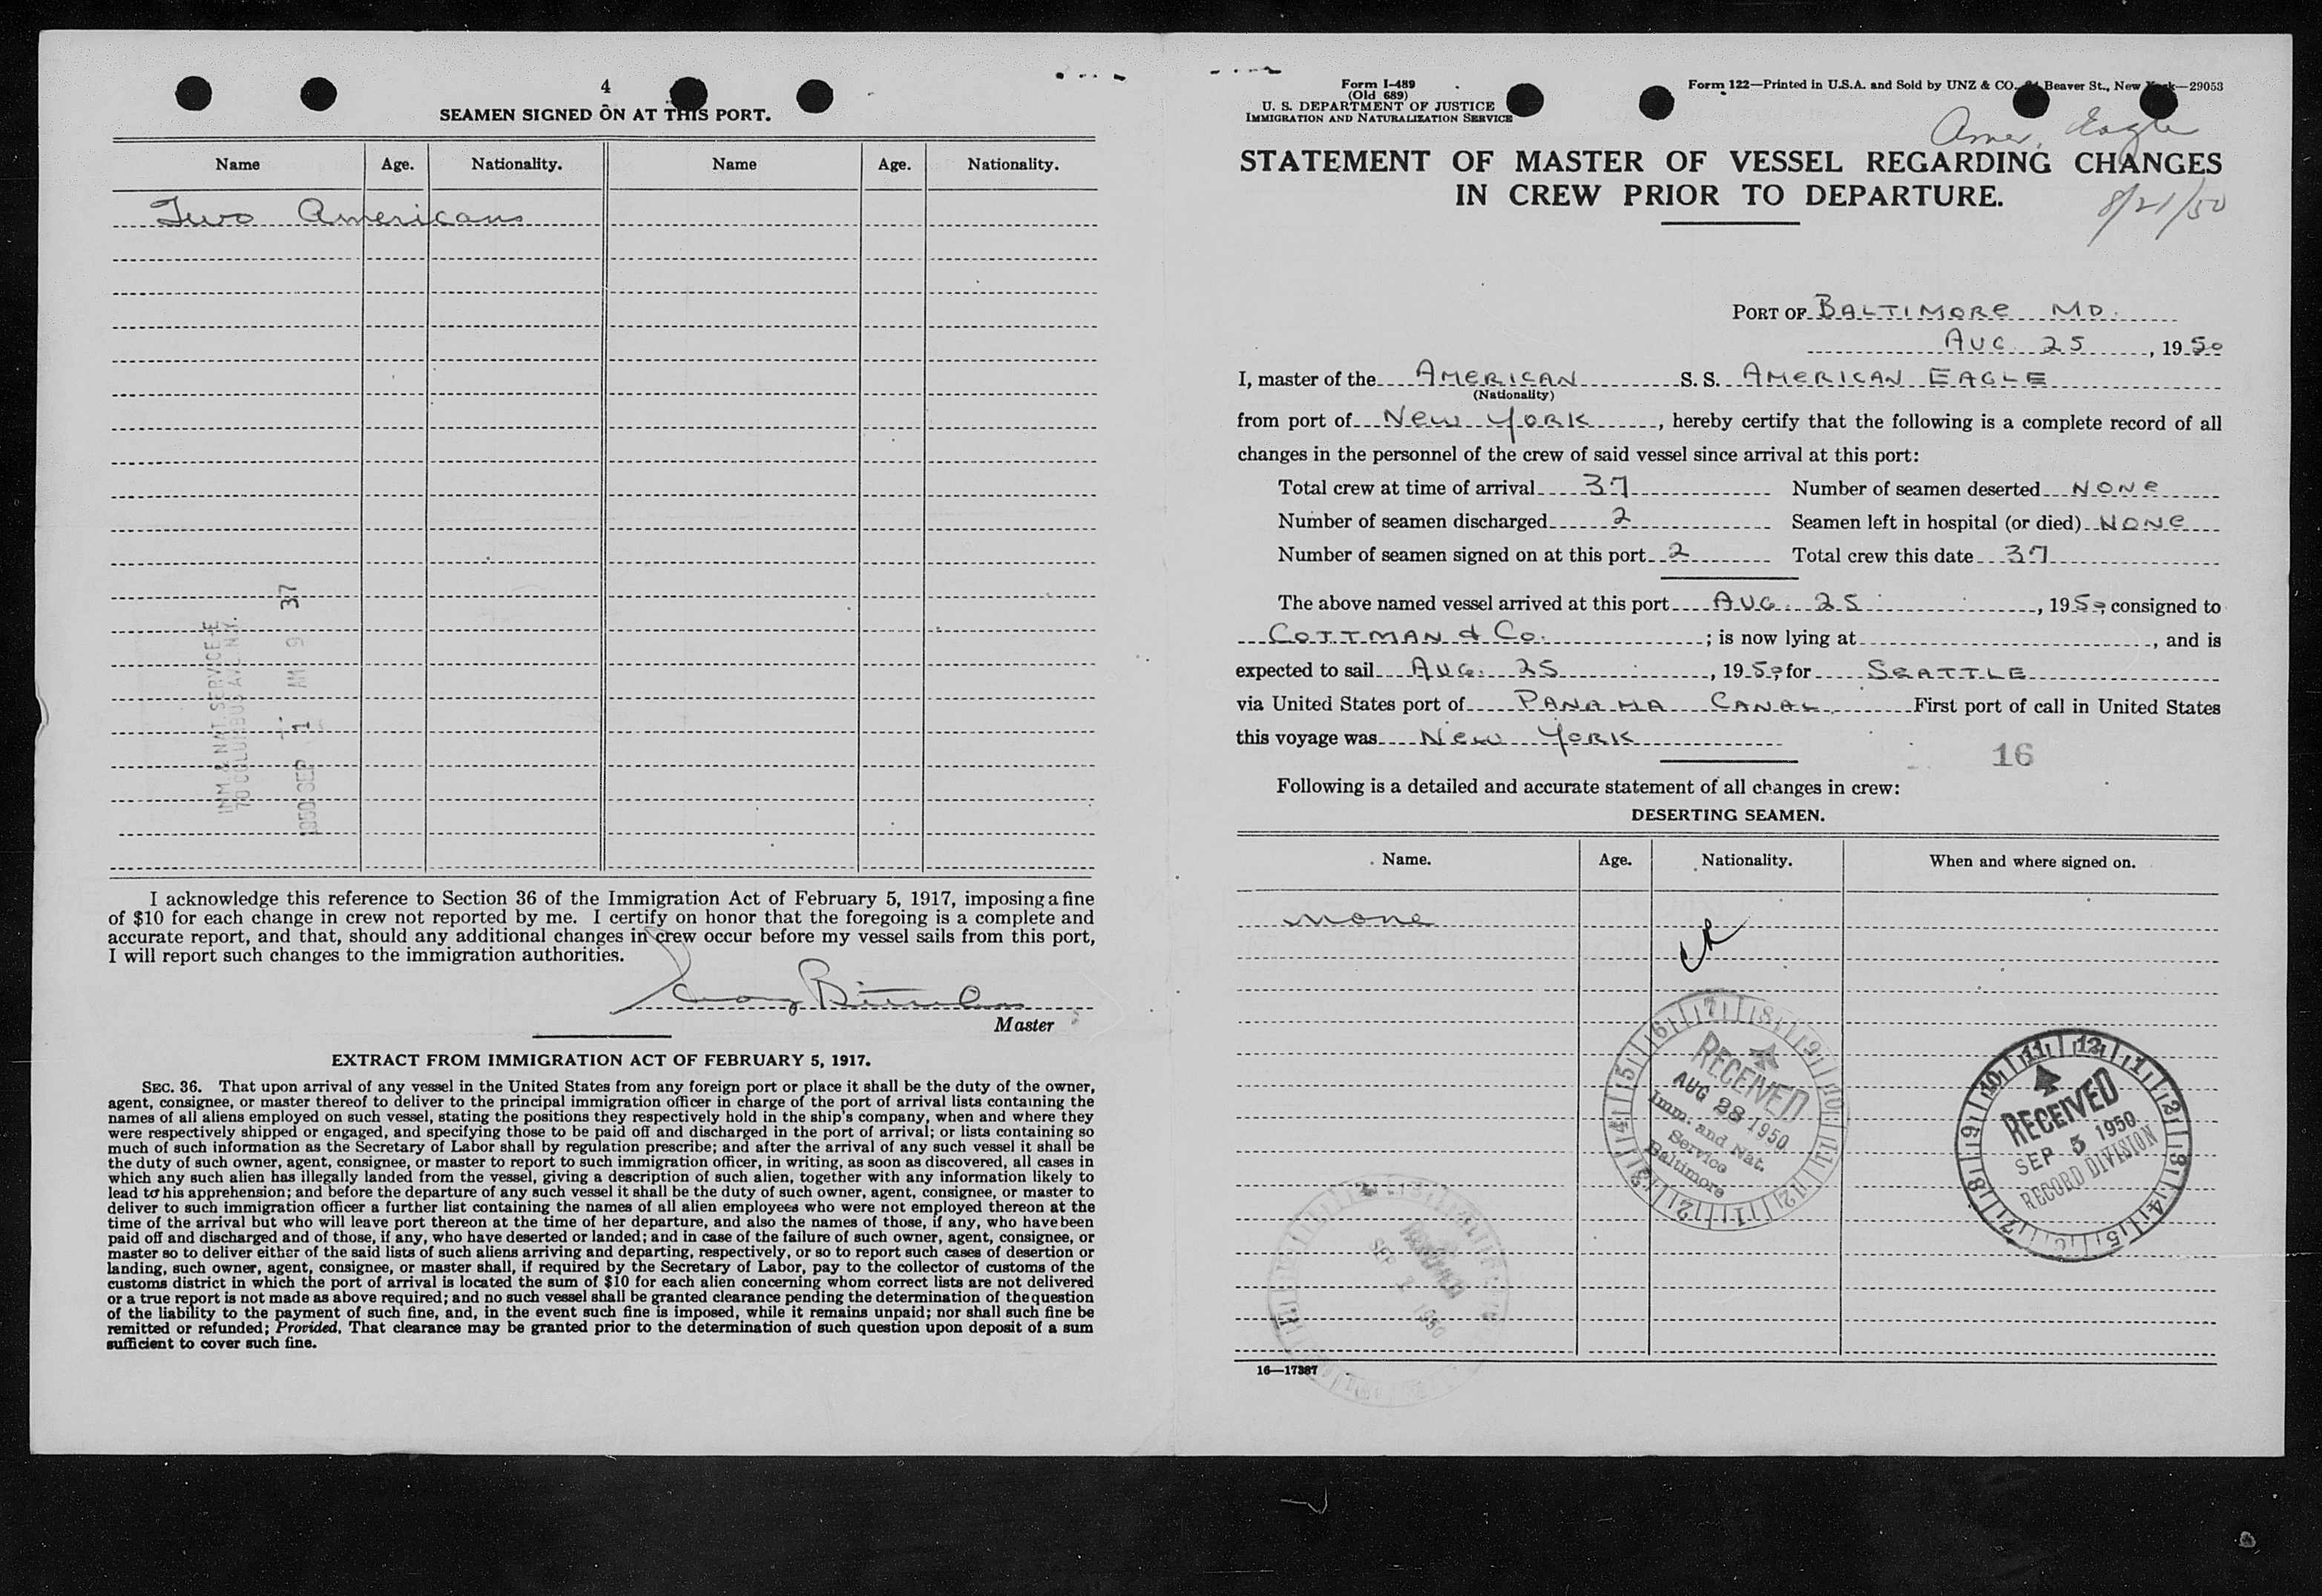 4
SEAMEN SIGNED ON AT THIS PORT.
Name Age. Nationality. Name Age. Nationality.
Two Americans
IMM. & NAT. SERVICE
70 COLUMBUS AVE. N.Y.
1950 SEP 1 AM 9 37
I acknowledge this reference to Section 36 of the Immigration Act of February 5, 1917, imposing a fine
of $10 for each change in crew not reported by me. I certify on honor that the foregoing is a complete and
accurate report, and that, should any additional changes in crew occur before my vessel sails from this port,
I will report such changes to the immigration authorities.
Master
EXTRACT FROM IMMIGRATION ACT OF FEBRUARY 5, 1917.
SEC. 36. That upon arrival of any vessel in the United States from any foreign port or place it shall be the duty of the owner,
agent, consignee, or master thereof to deliver to the principal immigration officer in charge of the port of arrival lists containing the
names of all aliens employed on such vessel, stating the positions they respectively hold in the ship's company, when and where they
were respectively shipped or engaged, and specifying those to be paid off and discharged in the port of arrival; or lists containing so
much of such information as the Secretary of Labor shall by regulation prescribe; and after the arrival of any such vessel it shall be
the duty of such owner, agent, consignee, or master to report to such immigration officer, in writing, as soon as discovered, all cases in
which any such alien has illegally landed from the vessel, giving a description of such alien, together with any information likely to
lead to his apprehension; and before the departure of any such vessel it shall be the duty of such owner, agent, consignee, or master to
deliver to such immigration officer a further list containing the names of all alien employees who were not employed thereon at the
time of the arrival but who will leave port thereon at the time of her departure, and also the names of those, if any, who have been
paid off and discharged and of those, if any, who have deserted or landed; and in case of the failure of such owner, agent, consignee, or
master so to deliver either of the said lists of such aliens arriving and departing, respectively, or so to report such cases of desertion or
landing, such owner, agent, consignee, or master shall, if required by the Secretary of Labor, pay to the collector of customs of the
customs district in which the port of arrival is located the sum of $10 for each alien concerning whom correct lists are not delivered
or a true report is not made as above required; and no such vessel shall be granted clearance pending the determination of the question
of the liability to the payment of such fine, and, in the event such fine is imposed, while it remains unpaid; nor shall such fine be
remitted or refunded; Provided, That clearance may be granted prior to the determination of such question upon deposit of a sum
sufficient to cover such fine.
Form I-489
(Old 689)
U. S. DEPARTMENT OF JUSTICE
IMMIGRATION AND NATURALIZATION SERVICE
Form 122—Printed in U.S.A. and Sold by UNZ & CO. Beaver St., New York—29053
Amer. Eagle
STATEMENT OF MASTER OF VESSEL REGARDING CHANGES
IN CREW PRIOR TO DEPARTURE.
8/21/50
PORT OF BALTIMORE MD.
AUG 25, 1950
I, master of the AMERICAN S. S. AMERICAN EAGLE
(Nationality)
from port of NEW YORK, hereby certify that the following is a complete record of all
changes in the personnel of the crew of said vessel since arrival at this port:
Total crew at time of arrival 37 Number of seamen deserted NONE
Number of seamen discharged 2 Seamen left in hospital (or died) NONE
Number of seamen signed on at this port 2 Total crew this date 37
The above named vessel arrived at this port AUG. 25, 1950, consigned to
COTTMAN & CO.; is now lying at , and is
expected to sail AUG. 25, 1950, for SEATTLE
via United States port of PANAMA CANAL First port of call in United States
this voyage was NEW YORK
16
Following is a detailed and accurate statement of all changes in crew:
DESERTING SEAMEN.
Name. Age. Nationality. When and where signed on.
None
RECEIVED
AUG 28 1950
Imm. and Nat.
Service
Baltimore
RECEIVED
SEP 5 1950
RECORD DIVISION
SEP 1950
16—17387